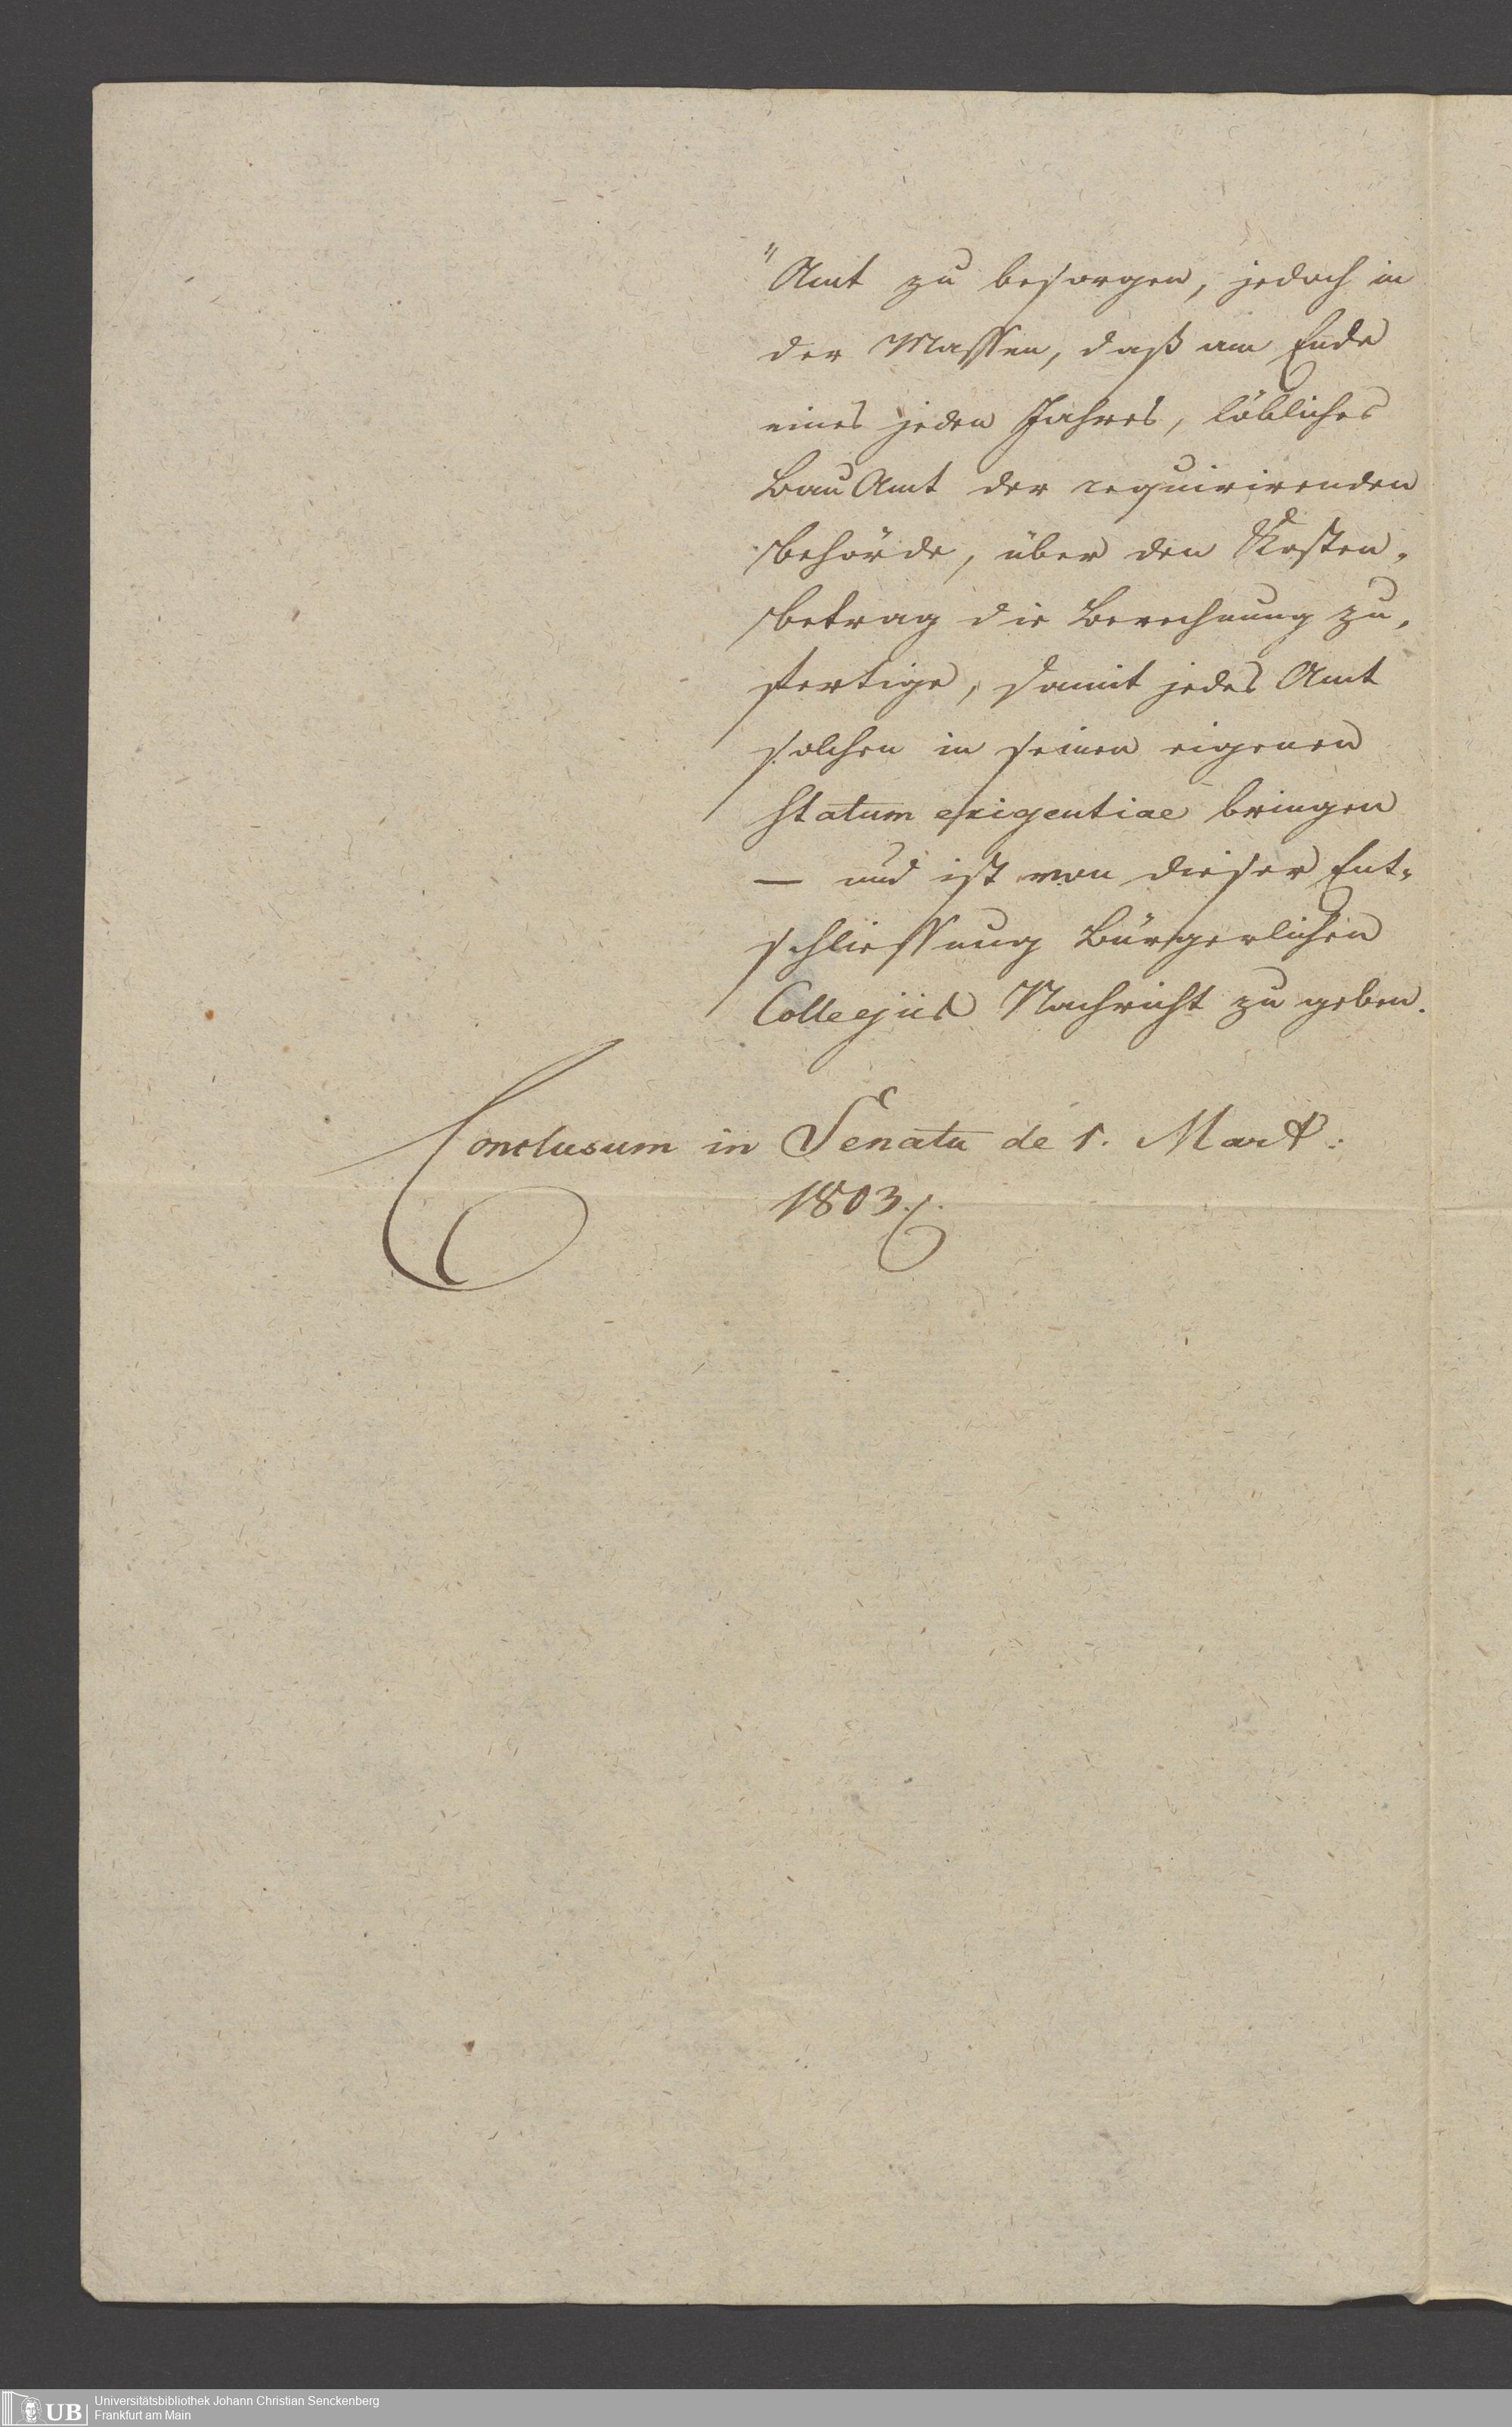 "Amt zu besorgen, jedoch in
der Massen, daß am Ende
eines jeden Jahres, löbliches
Bau Amt der requirirenden
Behörde, über den Kosten-
betrag die Berechnung zu-
fertige, damit jedes Amt
solchen in seinen eigenen
Statum exigentiae bringen
— und ist von dieser Ent-
schliessung Bürgerlichen
Collegiis Nachricht zu geben.
Conclusum in Senatu de 1. Mart:
1803.
UB
Universitätsbibliothek Johann Christian Senckenberg
Frankfurt am Main